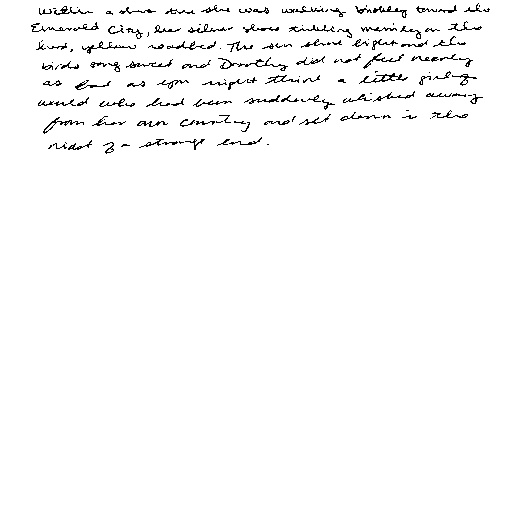 Within a short time she was walking briskly toward the
Emerald City, her silver shoes tinkling merrily on the
hard, yellow roadbed. The sun shone bright and the
birds sang sweet and Dorothy did not feel nearly
as bad as you might think a little girl
would who had been suddenly whisked away
from her own country and set down in the
midst of a strange land.